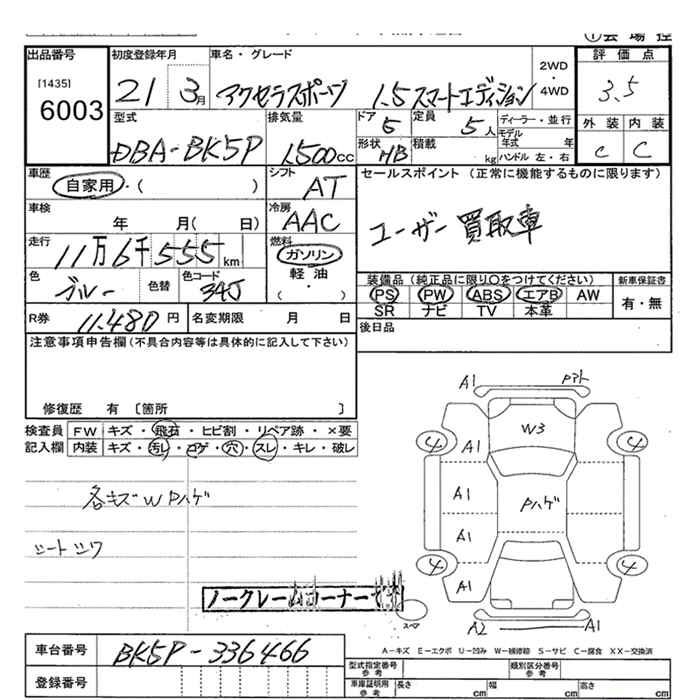 ①会場控
出品番号
[1435]
6003
初度登録年月
21 3月
車名・グレード
アクセラスポーツ 1.5 スマートエディション
2WD
・
4WD
評価点
3.5
型式
DBA-BK5P
排気量
1500cc
ドア
5
定員
5人
形状
HB
積載
kg
ディーラー・並行
モデル
年式 年
ハンドル 左・右
外装 内装
C C
車歴
自家用・( )
シフト
AT
車検
年 月( 日)
冷房
AAC
走行
11万6千555km
燃料
ガソリン
軽油
( ・ )
色
ブルー
色替
色コード
34J
R券 11,480円
名変期限 月 日
セールスポイント (正常に機能するものに限ります)
ユーザー買取車
装備品 (純正品に限り○をつけてください)
新車保証書
PS PW ABS エアB AW
SR ナビ TV 本革
有・無
後日品
注意事項申告欄(不具合内容等は具体的に記入して下さい)
修復歴 有 〔箇所 〕
検査員 FW キズ・飛石・ヒビ割・リペア跡・×要
記入欄 内装 キズ・汚レ・コゲ・穴・スレ・キレ・破レ
各キズW Pハゲ
シートシワ
ノークレームコーナーです
A1
W3
4 A1 4
A1 Pハゲ
A1
4 A1 4
スペア
A2 A1
A-キズ E-エクボ U-凹み W-補修跡 S-サビ C-腐食 XX-交換済
車台番号 BK5P-336466
登録番号
型式指定番号
参考
類別区分番号
参考
車庫証明用
参考
長さ cm 幅 cm 高さ cm